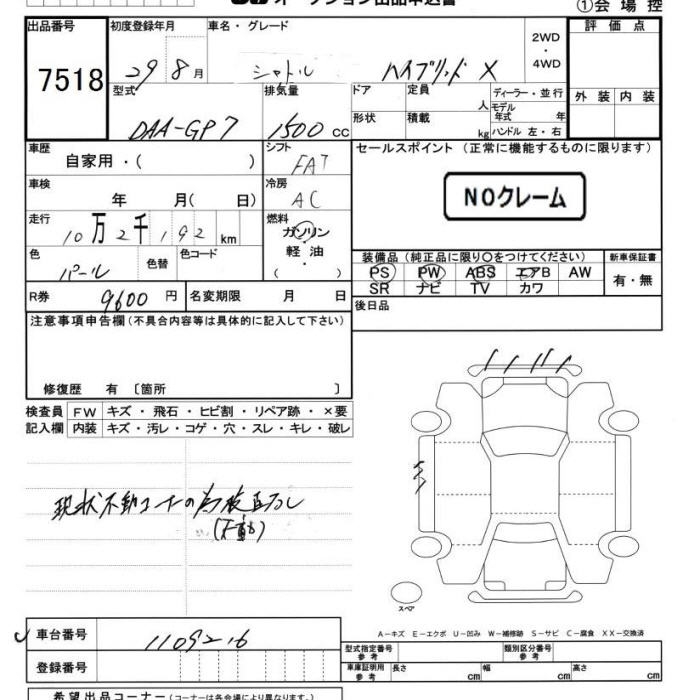 オークション出品申込書
①会場控
出品番号 初度登録年月 車名・グレード 2WD・4WD 評価点
7518 29 8月 シャトル ハイブリッド X
型式 排気量 ドア 定員 人 ディーラー・並行 外装 内装
モデル年式 年
DAA-GP7 1500cc 形状 積載 kg ハンドル 左・右
車歴 シフト セールスポイント (正常に機能するものに限ります)
自家用・( ) FAT
車検 冷房 NOクレーム
年 月( 日) AC
走行 10万2千192km 燃料
ガソリン・軽油・( )
色 色替 色コード 装備品(純正品に限り〇をつけてください) 新車保証書
パール PS PW ABS エアB AW 有・無
SR ナビ TV カワ
R券 9600円 名変期限 月 日 後日品
注意事項申告欄(不具合内容等は具体的に記入して下さい)
修復歴 有 〔箇所 〕
検査員記入欄 FW キズ・飛石・ヒビ割・リペア跡・×要
内装 キズ・汚レ・コゲ・穴・スレ・キレ・破レ
現状不動コーナーの為検査なし
(不動)
スペア
A-キズ E-エクボ U-凹み W-補修跡 S-サビ C-腐食 XX-交換済
車台番号 1109216
型式指定番号 参考 類別区分番号 参考
登録番号 車庫証明用 参考 長さ cm 幅 cm 高さ cm
希望出品コーナー(コーナーは各会場により異なります。)